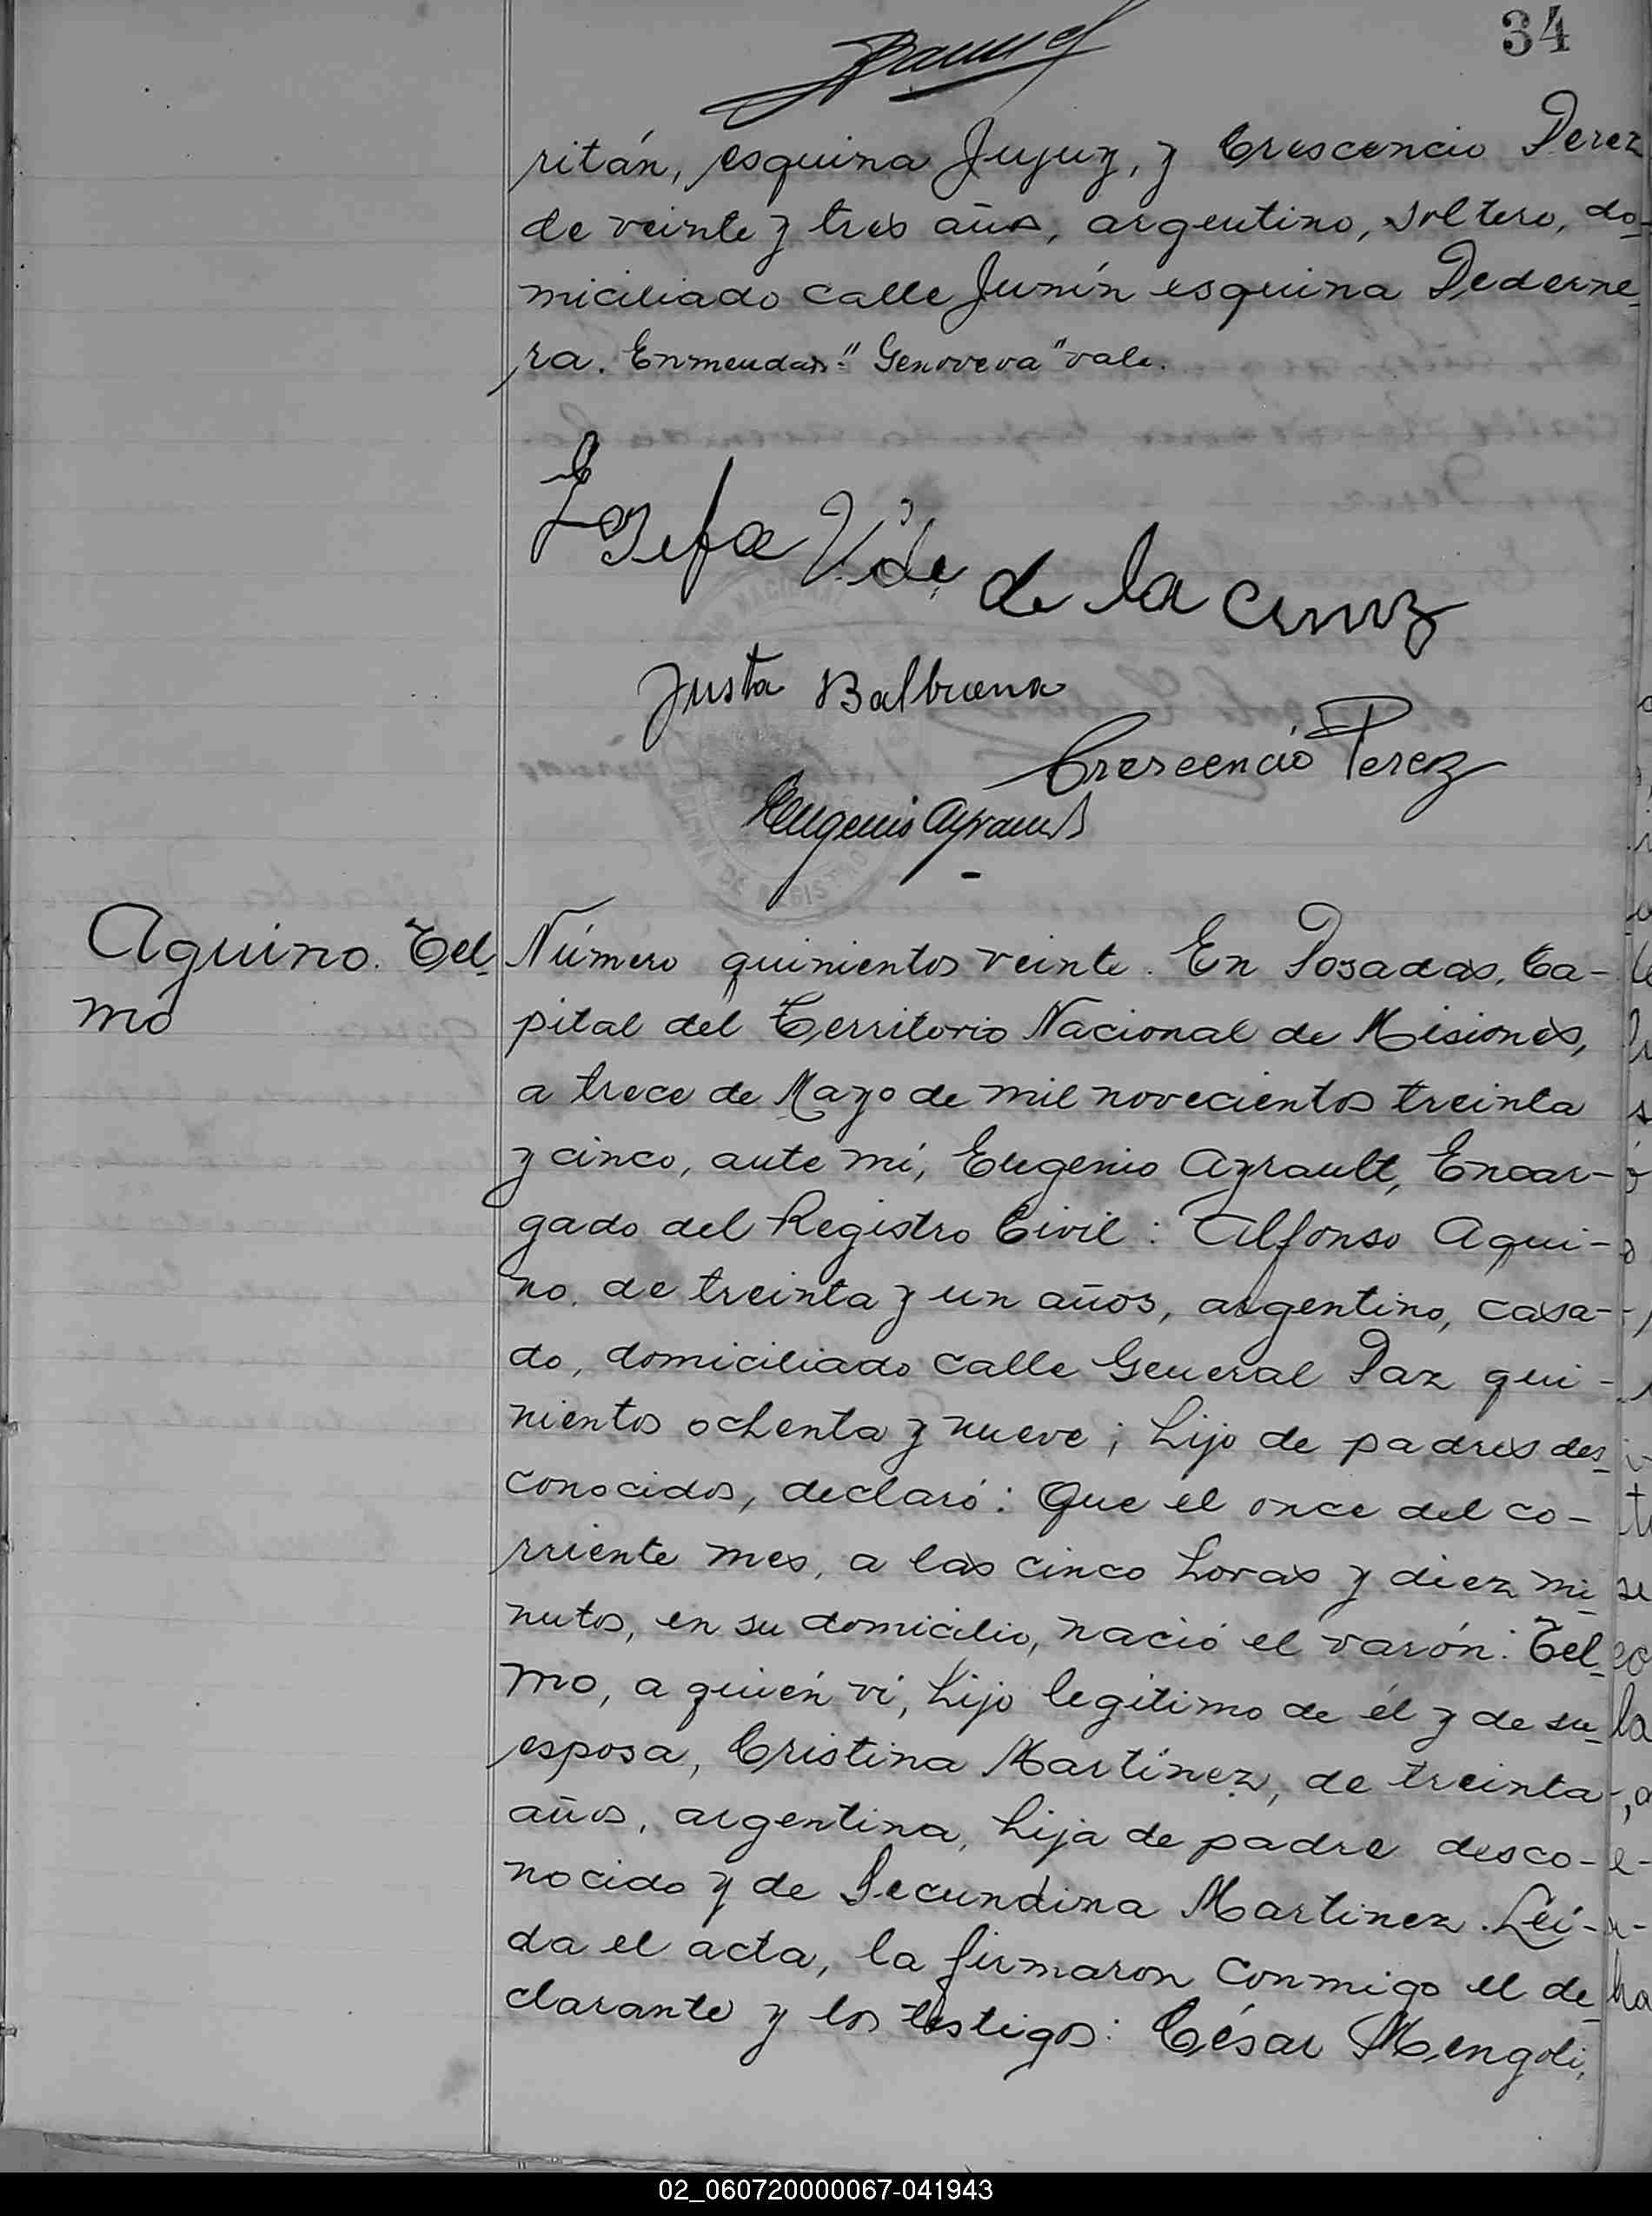 34
ritán, esquina Jujuy, y Crescencio Perez
de veinte y tres años, argentino, soltero, do-
miciliado calle Junín esquina Pederne-
ra. Enmendado: "Genoveva" vale.
Josefa V. de de la cruz
Justa Balbuena
Crescencio Perez
Eugenio Ayrault
Aquino. Tel-
mo
Número quinientos veinte. En Posadas, Ca-
pital del Territorio Nacional de Misiones,
a trece de Mayo de mil novecientos treinta
y cinco, ante mí, Eugenio Ayrault, Encar-
gado del Registro Civil: Alfonso Aqui-
no. de treinta y un años, argentino, casa-
do, domiciliado calle General Paz qui-
nientos ochenta y nueve; hijo de padres des-
conocidos, declaró: Que el once del co-
rriente mes, a las cinco horas y diez mi-
nutos, en su domicilio, nació el varón: Tel-
mo, a quién ví, hijo legítimo de él y de su
esposa, Cristina Martínez, de treinta
años, argentina, hija de padre desco-
nocido y de Secundina Martinez. Leí-
da el acta, la firmaron conmigo el de-
clarante y los testigos: César Mengoli,
02_060720000067-041943